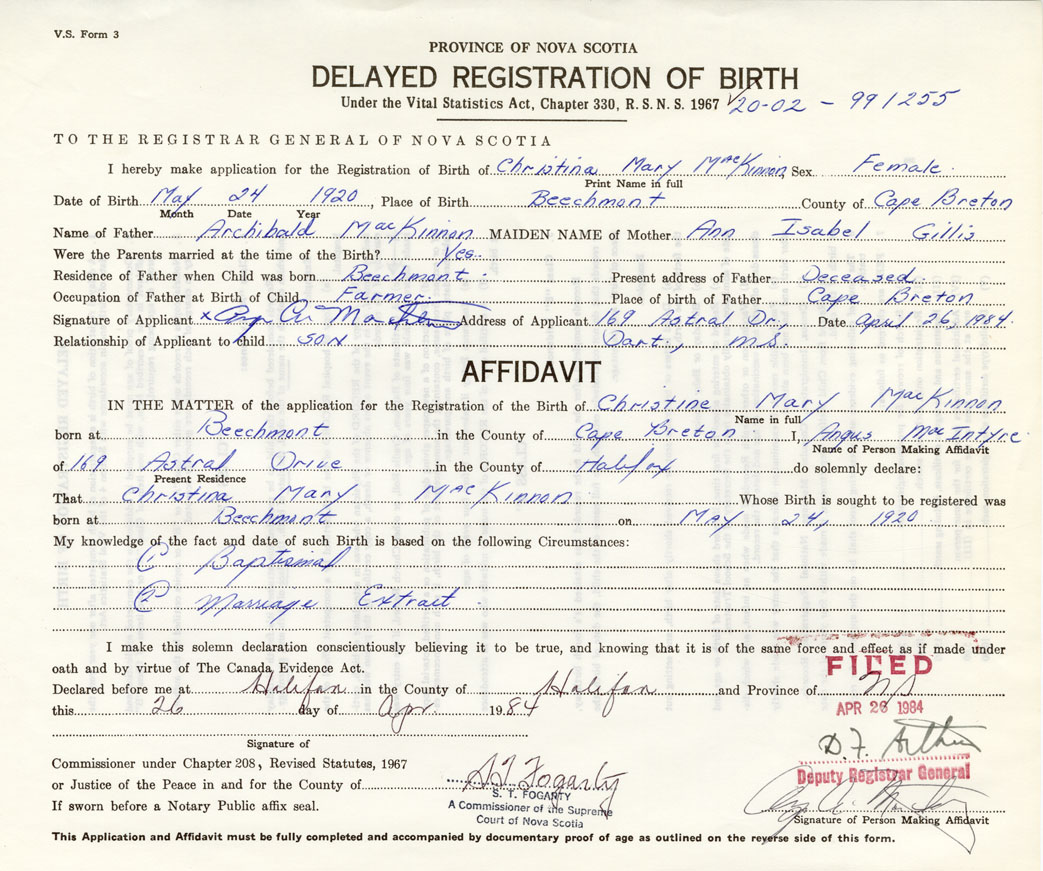 V.S. Form 3
PROVINCE OF NOVA SCOTIA
DELAYED REGISTRATION OF BIRTH
Under the Vital Statistics Act, Chapter 330, R.S.N.S. 1967 20-02 - 991255
TO THE REGISTRAR GENERAL OF NOVA SCOTIA
I hereby make application for the Registration of Birth of Christina Mary MacKinnon Sex Female
Print Name in full
Date of Birth May 24 1920, Place of Birth Beechmont County of Cape Breton
Month Date Year
Name of Father Archibald MacKinnon MAIDEN NAME of Mother Ann Isabel Gillis
Were the Parents married at the time of the Birth? Yes
Residence of Father when Child was born Beechmont Present address of Father Deceased
Occupation of Father at Birth of Child Farmer Place of birth of Father Cape Breton
Signature of Applicant x Address of Applicant 169 Astral Dr., Date April 26, 1984
Relationship of Applicant to child SON Dart.,
AFFIDAVIT
IN THE MATTER of the application for the Registration of the Birth of Christine Mary MacKinnon
Name in full
born at Beechmont in the County of Cape Breton I, Angus MacIntyre
Name of Person Making Affidavit
of 169 Astral Drive in the County of Halifax do solemnly declare:
Present Residence
That Christina Mary MacKinnon Whose Birth is sought to be registered was
born at Beechmont on May 24, 1920
My knowledge of the fact and date of such Birth is based on the following Circumstances:
1 Baptismal
2 Marriage Extract
I make this solemn declaration conscientiously believing it to be true, and knowing that it is of the same force and effect as if made under
oath and by virtue of The Canada Evidence Act.
FILED
Declared before me at Halifax in the County of Halifax and Province of NS
this 26 day of Apr. 1984
APR 26 1984
Signature of
D F Arthur
Commissioner under Chapter 208, Revised Statutes, 1967
Deputy Registrar General
or Justice of the Peace in and for the County of S T Fogarty
S. T. FOGARTY
If sworn before a Notary Public affix seal.
A Commissioner of the Supreme
Court of Nova Scotia
Signature of Person Making Affidavit
This Application and Affidavit must be fully completed and accompanied by documentary proof of age as outlined on the reverse side of this form.